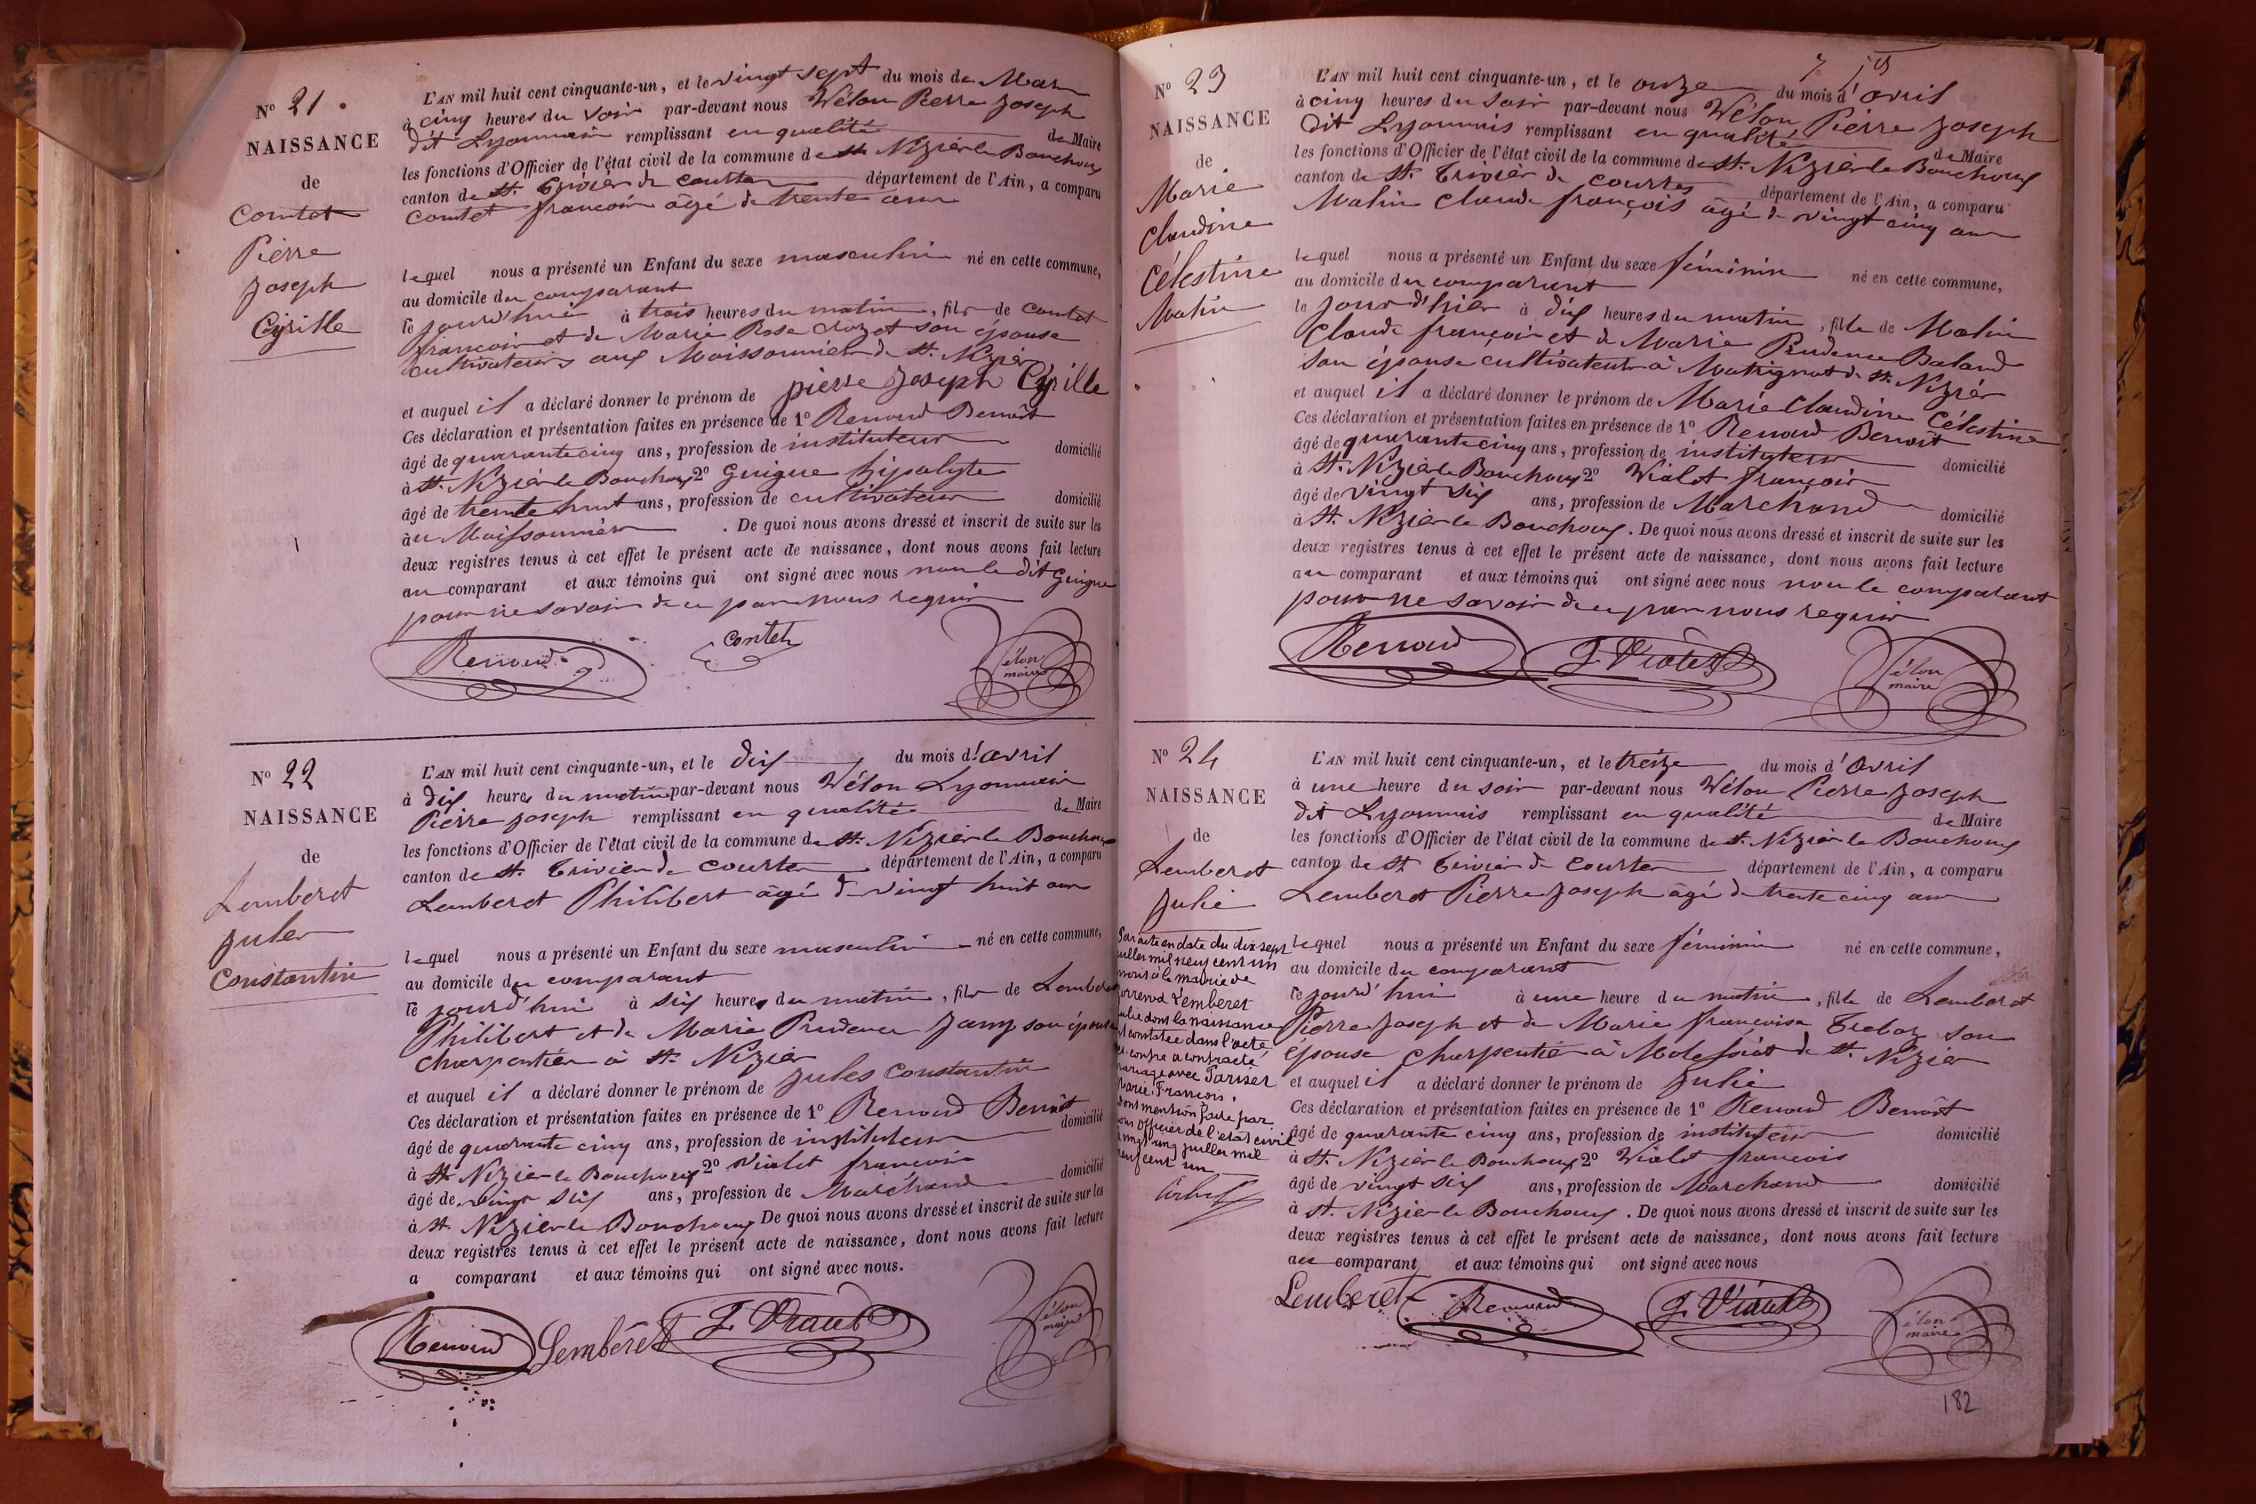 N° 21.
NAISSANCE
de
Comtet
Pierre
Joseph
Cyrille
L'AN mil huit cent cinquante-un, et le vingt sept du mois de Mars
à cinq heures du soir par-devant nous Vélon Pierre Joseph
dit Lyonnais remplissant en qualité de Maire
les fonctions d'Officier de l'état civil de la commune de St. Nizier le Bouchoux
canton de St. Trivier de Courtes département de l'Ain, a comparu
Comtet françois âgé de trente ans
lequel nous a présenté un Enfant du sexe masculin né en cette commune,
au domicile du comparant
le jourd'hui à trois heures du matin, fils de Comtet
françois et de Marie Rose Croz et son épouse
cultivateurs aux Maissonnier de St. Nizier
et auquel il a déclaré donner le prénom de pierre Joseph Cyrille
Ces déclaration et présentation faites en présence de 1° Renoud Benoît
âgé de quarante cinq ans, profession de instituteur domicilié
à St. Nizier le Bouchoux 2° Guigue hipolyte
âgé de trente huit ans, profession de cultivateur domicilié
au Maissonnier . De quoi nous avons dressé et inscrit de suite sur les
deux registres tenus à cet effet le présent acte de naissance, dont nous avons fait lecture
au comparant et aux témoins qui ont signé avec nous non le dit Guigue
pour ne savoir de ce par nous requis
Renoud comtet élon maire
N° 22
NAISSANCE
de
Lemberet
Jules
Constantin
L'AN mil huit cent cinquante-un, et le dix du mois d'avril
à dix heures du matin par-devant nous Vélon Lyonnais
Pierre Joseph remplissant en qualité de Maire
les fonctions d'Officier de l'état civil de la commune de St. Nizier le Bouchoux
canton de St. Trivier de Courtes département de l'Ain, a comparu
Lemberet Philibert âgé de vingt huit ans
lequel nous a présenté un Enfant du sexe masculin né en cette commune,
au domicile du comparant
le jourd'hui à six heures du matin, fils de Lemberet
Philibert et de Marie Prudence Jamy son épouse
charpentier à St. Nizier
et auquel il a déclaré donner le prénom de Jules Constantin
Ces déclaration et présentation faites en présence de 1° Renoud Benoît
âgé de quarante cinq ans, profession de instituteur domicilié
à St. Nizier le Bouchoux 2° Violet françois
âgé de vingt six ans, profession de Marchand domicilié
à St. Nizier le Bouchoux De quoi nous avons dressé et inscrit de suite sur les
deux registres tenus à cet effet le présent acte de naissance, dont nous avons fait lecture
a comparant et aux témoins qui ont signé avec nous.
Renoud Lembéret F. Violet élon maire
N° 23
NAISSANCE
de
Marie
Claudine
Célestine
Malin
L'AN mil huit cent cinquante-un, et le onze du mois d'avril
à cinq heures du soir par-devant nous Vélon Pierre Joseph
dit Lyonnais remplissant en qualité de Maire
les fonctions d'Officier de l'état civil de la commune de St. Nizier le Bouchoux
canton de St. Trivier de Courtes département de l'Ain, a comparu
Malin Claude françois âgé de vingt cinq ans
lequel nous a présenté un Enfant du sexe féminin né en cette commune,
au domicile du comparant
le jour d'hier à dix heures du matin, fille de Malin
Claude françois et de Marie Prudence Baland
son épouse cultivateurs à Matrignat de St. Nizier
et auquel il a déclaré donner le prénom de Marie Claudine Célestine
Ces déclaration et présentation faites en présence de 1° Renoud Benoît
âgé de quarante cinq ans, profession de instituteur domicilié
à St. Nizier le Bouchoux 2° Violet françois
âgé de vingt six ans, profession de Marchand domicilié
à St. Nizier le Bouchoux. De quoi nous avons dressé et inscrit de suite sur les
deux registres tenus à cet effet le présent acte de naissance, dont nous avons fait lecture
au comparant et aux témoins qui ont signé avec nous non le comparant
pour ne savoir de ce par nous requis
Renoud F. Violet élon maire
N° 24
NAISSANCE
de
Lemberet
Julie
Par acte en date du dix sept
juillet mil neuf cent un
à la mairie de
Lemberet
Julie dont la naissance
est constatée dans l'acte
ci-contre a contracté
mariage avec Pariser
Marie, François,
dont mention faite par
nous officier de l'état civil
le vingt cinq juillet mil
neuf cent un
L'AN mil huit cent cinquante-un, et le treize du mois d'Avril
à une heure du soir par-devant nous Vélon Pierre Joseph
dit Lyonnais remplissant en qualité de Maire
les fonctions d'Officier de l'état civil de la commune de St. Nizier le Bouchoux
canton de St. Trivier de Courtes département de l'Ain, a comparu
Lemberet Pierre Joseph âgé de trente cinq ans
lequel nous a présenté un Enfant du sexe féminin né en cette commune,
au domicile du comparant
le jourd'hui à une heure du matin, fille de Lemberet
Pierre Joseph et de Marie françoise Treboz son
épouse charpentier à Molessiat de St. Nizier
et auquel il a déclaré donner le prénom de Julie
Ces déclaration et présentation faites en présence de 1° Renoud Benoît
âgé de quarante cinq ans, profession de instituteur domicilié
à St. Nizier le Bouchoux 2° Violet françois
âgé de vingt six ans, profession de Marchand domicilié
à St. Nizier le Bouchoux. De quoi nous avons dressé et inscrit de suite sur les
deux registres tenus à cet effet le présent acte de naissance, dont nous avons fait lecture
au comparant et aux témoins qui ont signé avec nous
Lemberet Renoud F. Violet élon maire
182